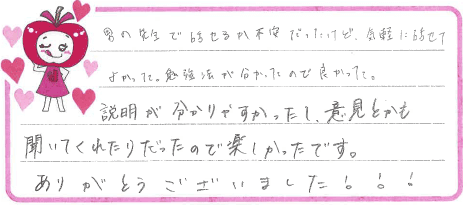 男の先生で話せるか不安だったけど、気軽に話せて
よかった。勉強法が分かったので良かった。
説明が分かりやすかったし、意見とかも
聞いてくれたりだったので楽しかったです。
ありがとうございました!!!